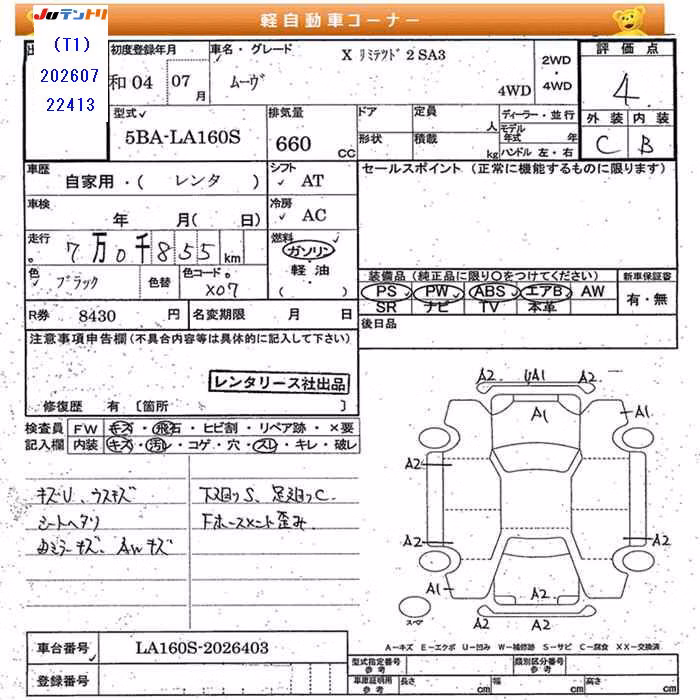 JUテントリ
軽自動車コーナー
(T1)
202607
22413
初度登録年月
和04 07月
車名・グレード
ムーヴ
X リミテッド2 SA3
4WD
2WD
・
4WD
評価点
4
外装 内装
C B
型式
5BA-LA160S
排気量
660 CC
ドア
形状
定員 人
積載 kg
ディーラー・並行
モデル年式 年
ハンドル 左・右
車歴
自家用・( レンタ )
シフト
AT
車検
年 月( 日)
冷房
AC
走行
7万0千855km
燃料
ガソリン
軽・油
( )
色
ブラック
色替
色コード
X07
R券 8430 円
名変期限 月 日
セールスポイント(正常に機能するものに限ります)
装備品(純正品に限り○をつけてください)
PS PW ABS エアB AW
SR ナビ TV 本革
新車保証書
有・無
後日品
注意事項申告欄(不具合内容等は具体的に記入して下さい)
レンタリース社出品
修復歴 有 [箇所 ]
検査員
記入欄
FW キズ・飛石・ヒビ割・リペア跡・×要
内装 キズ・汚レ・コゲ・穴・スレ・キレ・破レ
キズU、ウスキズ
シートヘタリ
ミラーキズ、AWキズ
下廻りS、足廻りC
歪み
A2 UA1 A2
A1 A1
A2
A2 A2
A1 A2
A2 A2
スペア
A－キズ E－エクボ U－凹み W－補修跡 S－サビ C－腐食 XX－交換済
車台番号 LA160S-2026403
登録番号
型式指定番号
参考
類別区分番号
参考
車庫証明用
参考
長さ cm
幅 cm
高さ cm